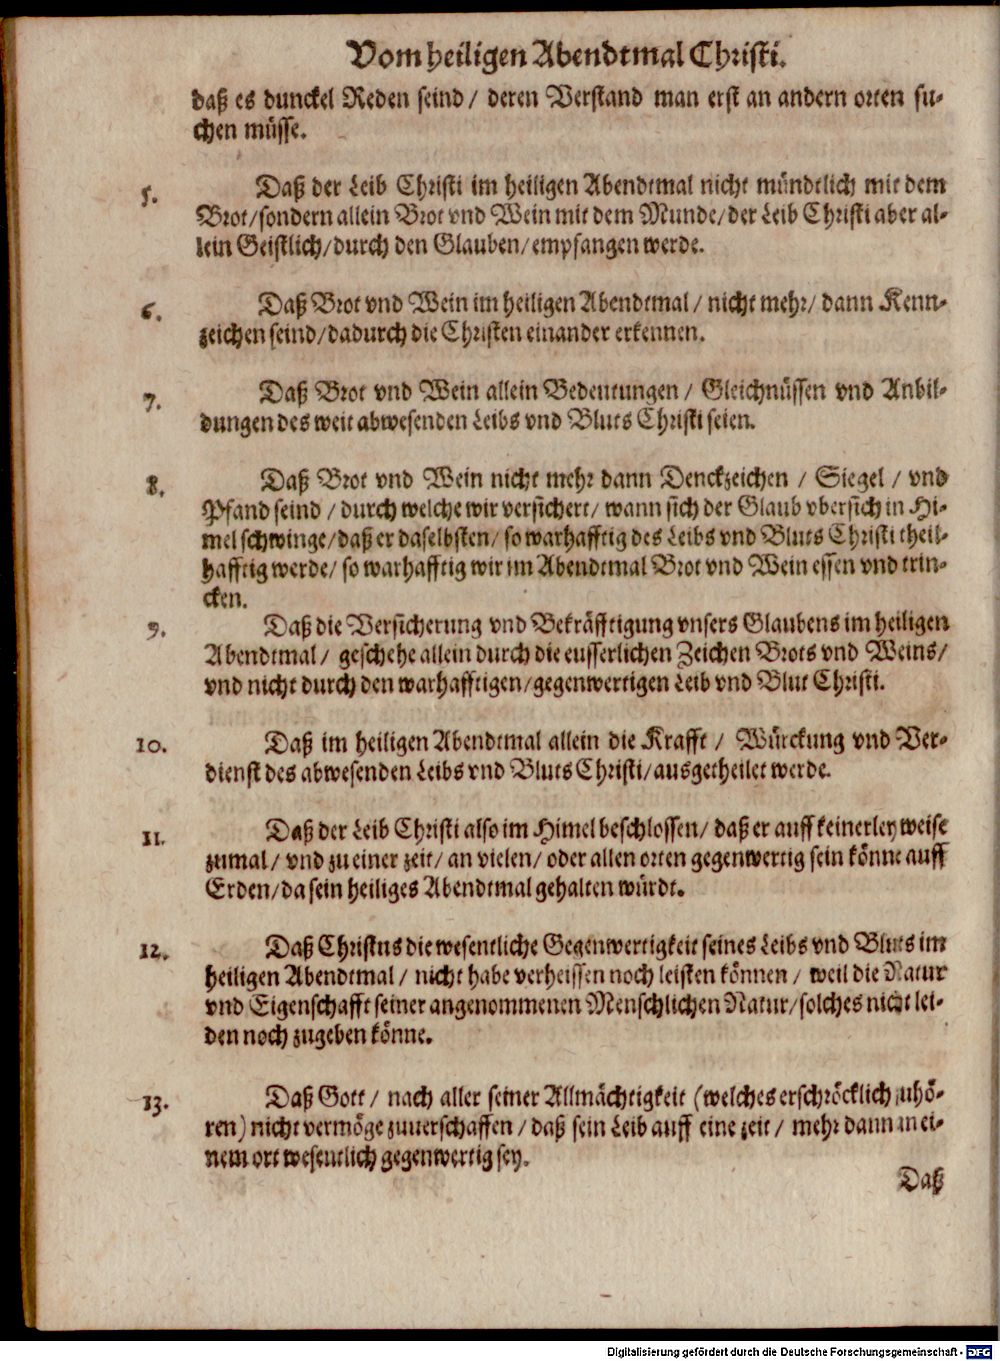 Vom heiligen Abendtmal Christi.
daß es dunckel Reden seind / deren Verstand man erst an andern orten su-
chen müsse.
5. Daß der Leib Christi im heiligen Abendtmal nicht mündtlich mit dem
Brot/sondern allein Brot vnd Wein mit dem Munde/der Leib Christi aber al-
lein Geistlich/durch den Glauben/empfangen werde.
6. Daß Brot vnd Wein im heiligen Abendtmal / nicht mehr/ dann Kenn-
zeichen seind/dadurch die Christen einander erkennen.
7. Daß Brot vnd Wein allein Bedeutungen / Gleichnüssen vnd Anbil-
dungen des weit abwesenden Leibs vnd Bluts Christi seien.
8. Daß Brot vnd Wein nicht mehr dann Denckzeichen / Siegel / vnd
Pfand seind / durch welche wir versichert/ wann sich der Glaub vbersich in Hi-
mel schwinge/daß er daselbsten/ so warhafftig des Leibs vnd Bluts Christi theil-
hafftig werde/ so warhafftig wir im Abendtmal Brot vnd Wein essen vnd trin-
cken.
9. Daß die Versicherung vnd Bekräfftigung vnsers Glaubens im heiligen
Abendtmal/ geschehe allein durch die eusserlichen Zeichen Brots vnd Weins/
vnd nicht durch den warhafftigen/gegenwertigen Leib vnd Blut Christi.
10. Daß im heiligen Abendtmal allein die Krafft / Würckung vnd Ver-
dienst des abwesenden Leibs vnd Bluts Christi/ausgetheilet werde.
11. Daß der Leib Christi also im Himel beschlossen/ daß er auff keinerley weise
zumal/ vnd zu einer zeit/ an vielen/ oder allen orten gegenwertig sein könne auff
Erden/da sein heiliges Abendtmal gehalten würdt.
12. Daß Christus die wesentliche Gegenwertigkeit seines Leibs vnd Bluts im
heiligen Abendtmal / nicht habe verheissen noch leisten können / weil die Natur
vnd Eigenschafft seiner angenommenen Menschlichen Natur/solches nicht lei-
den noch zugeben könne.
13. Daß Gott / nach aller seiner Allmächtigkeit (welches erschröcklich zuhö-
ren) nicht vermöge zuuerschaffen / daß sein Leib auff eine zeit / mehr dann in ei-
nem ort wesentlich gegenwertig sey.
Daß
Digitalisierung gefördert durch die Deutsche Forschungsgemeinschaft - DFG